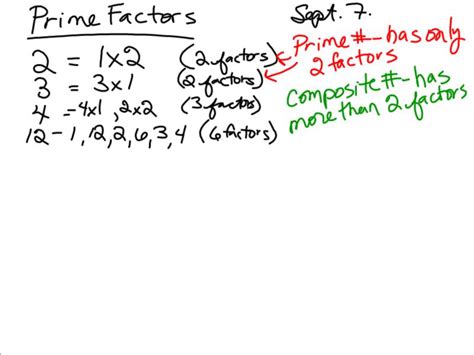 Prime Factors
Sept. 7.
2 = 1x2 (2 factors)
3 = 3x1 (2 factors)
4 - 4x1, 2x2 (3 factors)
12 - 1, 12, 2, 6, 3, 4 (6 factors)
Prime # - has only
2 factors
Composite # - has
more than 2 factors